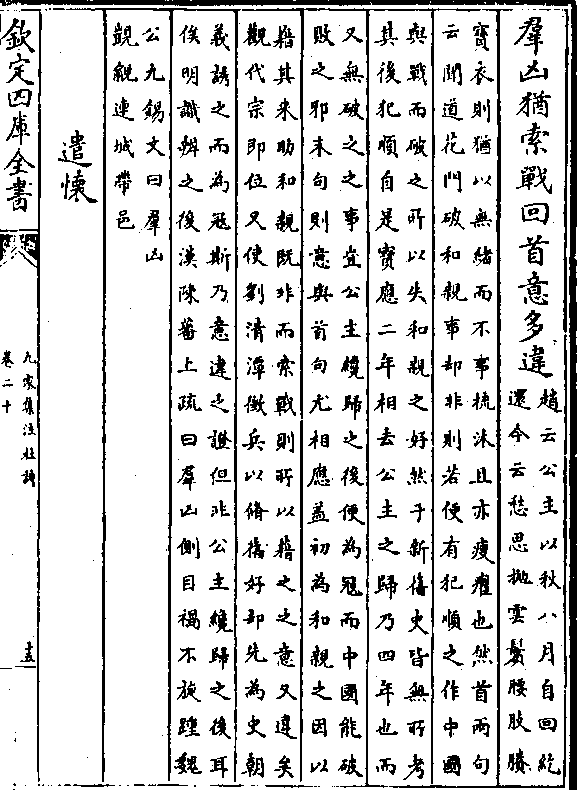 羣凶猶索戰回首意多違
趙云公主以秋八月自回紇
還今云愁思抛雲鬢腰肢賸
寳衣則猶以無緒而不事梳沐且亦瘦癯也然首兩句
云聞道花門破和親事却非則若便有犯順之作中國
與戰而破之所以失和親之好然于新舊史皆無所考
其後犯順自是寳應二年相去公主之歸乃四年也而
又無破之之事豈公主纔歸之後便為冦而中國能破
敗之邪末句則意與首句尤相應蓋初為和親之因以
藉其来助和親既非而索戰則所以藉之之意又違矣
觀代宗即位又使劉清潭徵兵以脩舊好却先為史朝
義誘之而為冦斯乃意違之證但非公主纔歸之後耳
俟明識辨之後漢陳蕃上疏曰羣凶側目禍不旋踵魏
公九錫文曰羣凶
覬覦連城帶邑
遣懷
欽定四庫全書
九家集注杜詩
卷二十
十五